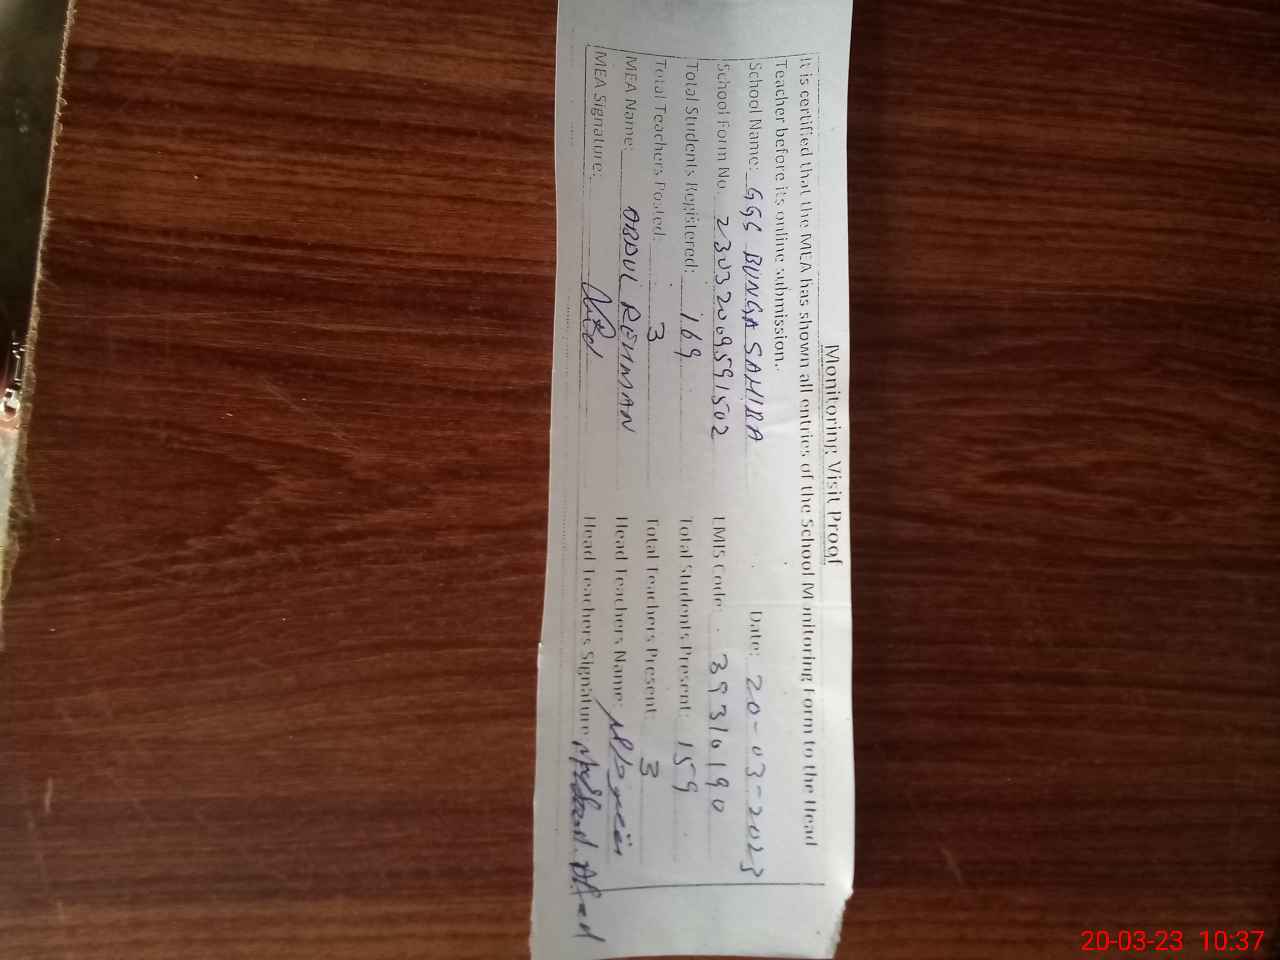 Monitoring Visit Proof
It is certified that the MEA has shown all entries of the School Monitoring Form to the Head
Teacher before its online submission.
School Name: GGS BUNGA SAHIBA Date: 20-03-2023
School Form No. 23032009591502 EMIS Code: 39310190
Total Students Registered: 169 Total Students Present: 159
Total Teachers Posted: 3 Total Teachers Present: 3
MEA Name: OBDUL REHMAN Head Teachers Name:
MEA Signature: Head Teachers Signature
20-03-23 10:37